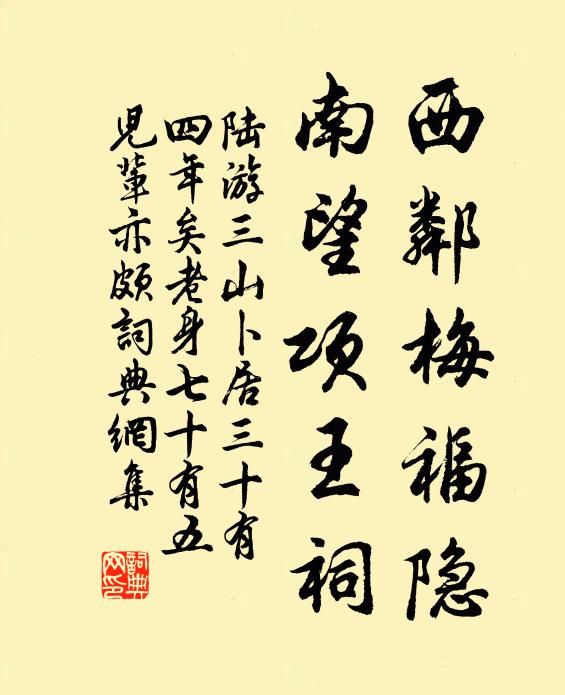 西鄰梅福隐
南望項王祠
陆游三山卜居三十有
四年矣老身七十有五
児輩亦頗詞典網集
詞典网印